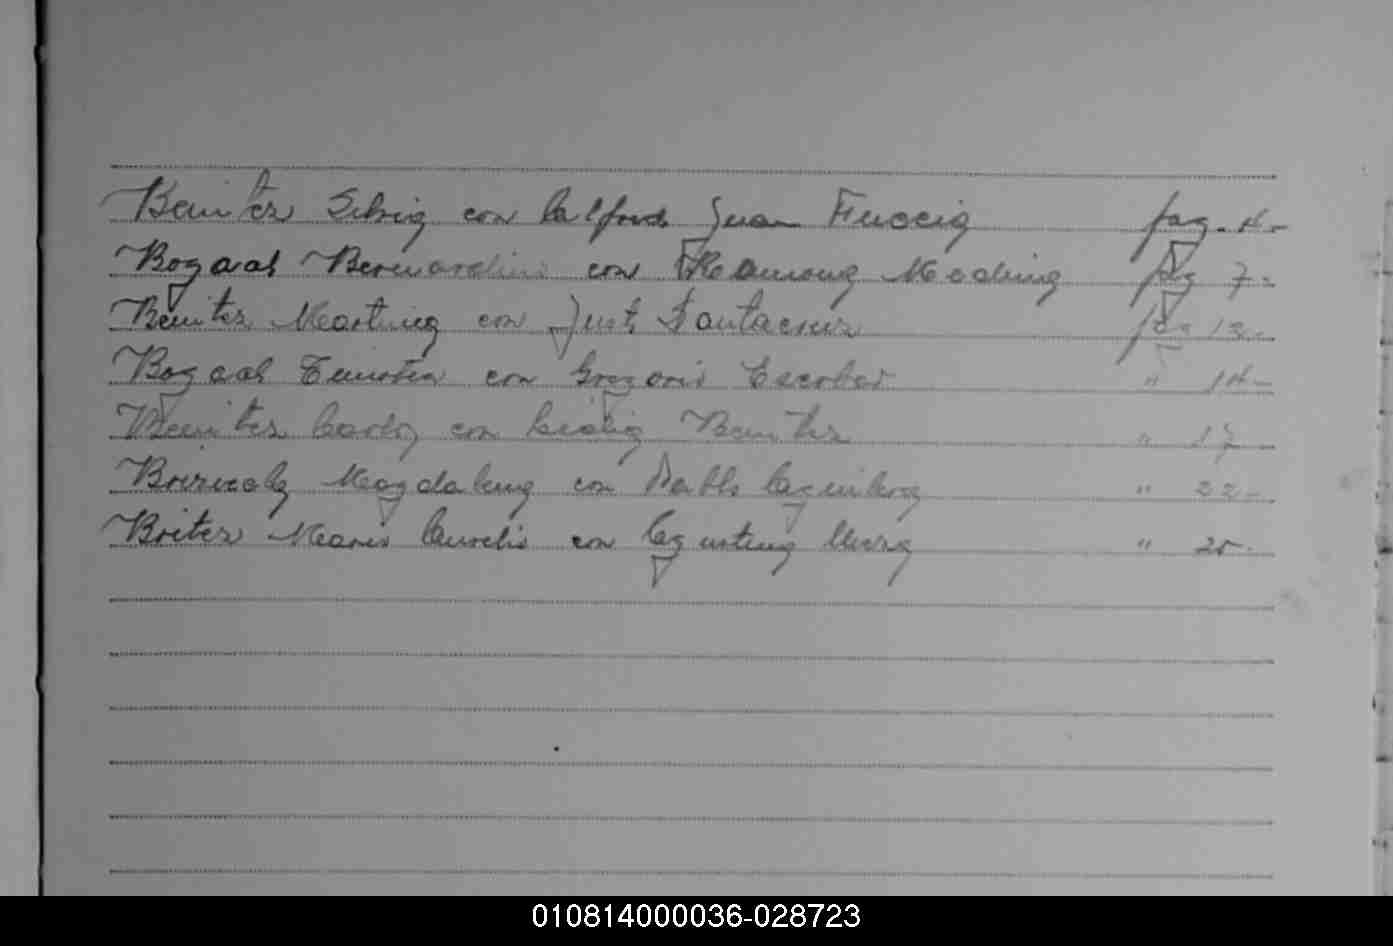 Benitez Silvia con Calford Juan Francia pag. 4.-
Bogado Bernardino con Ramona Medina pag 7.-
Benitez Martina con Justo Santacruz pag 12.-
Bogado con Gregorio Escobar " 14.-
Benitez Carlos con Benitez " 17.-
Magdalena con Pablo " 22.-
Britez Maria Aurelia con Agustina " 25.
010814000036-028723